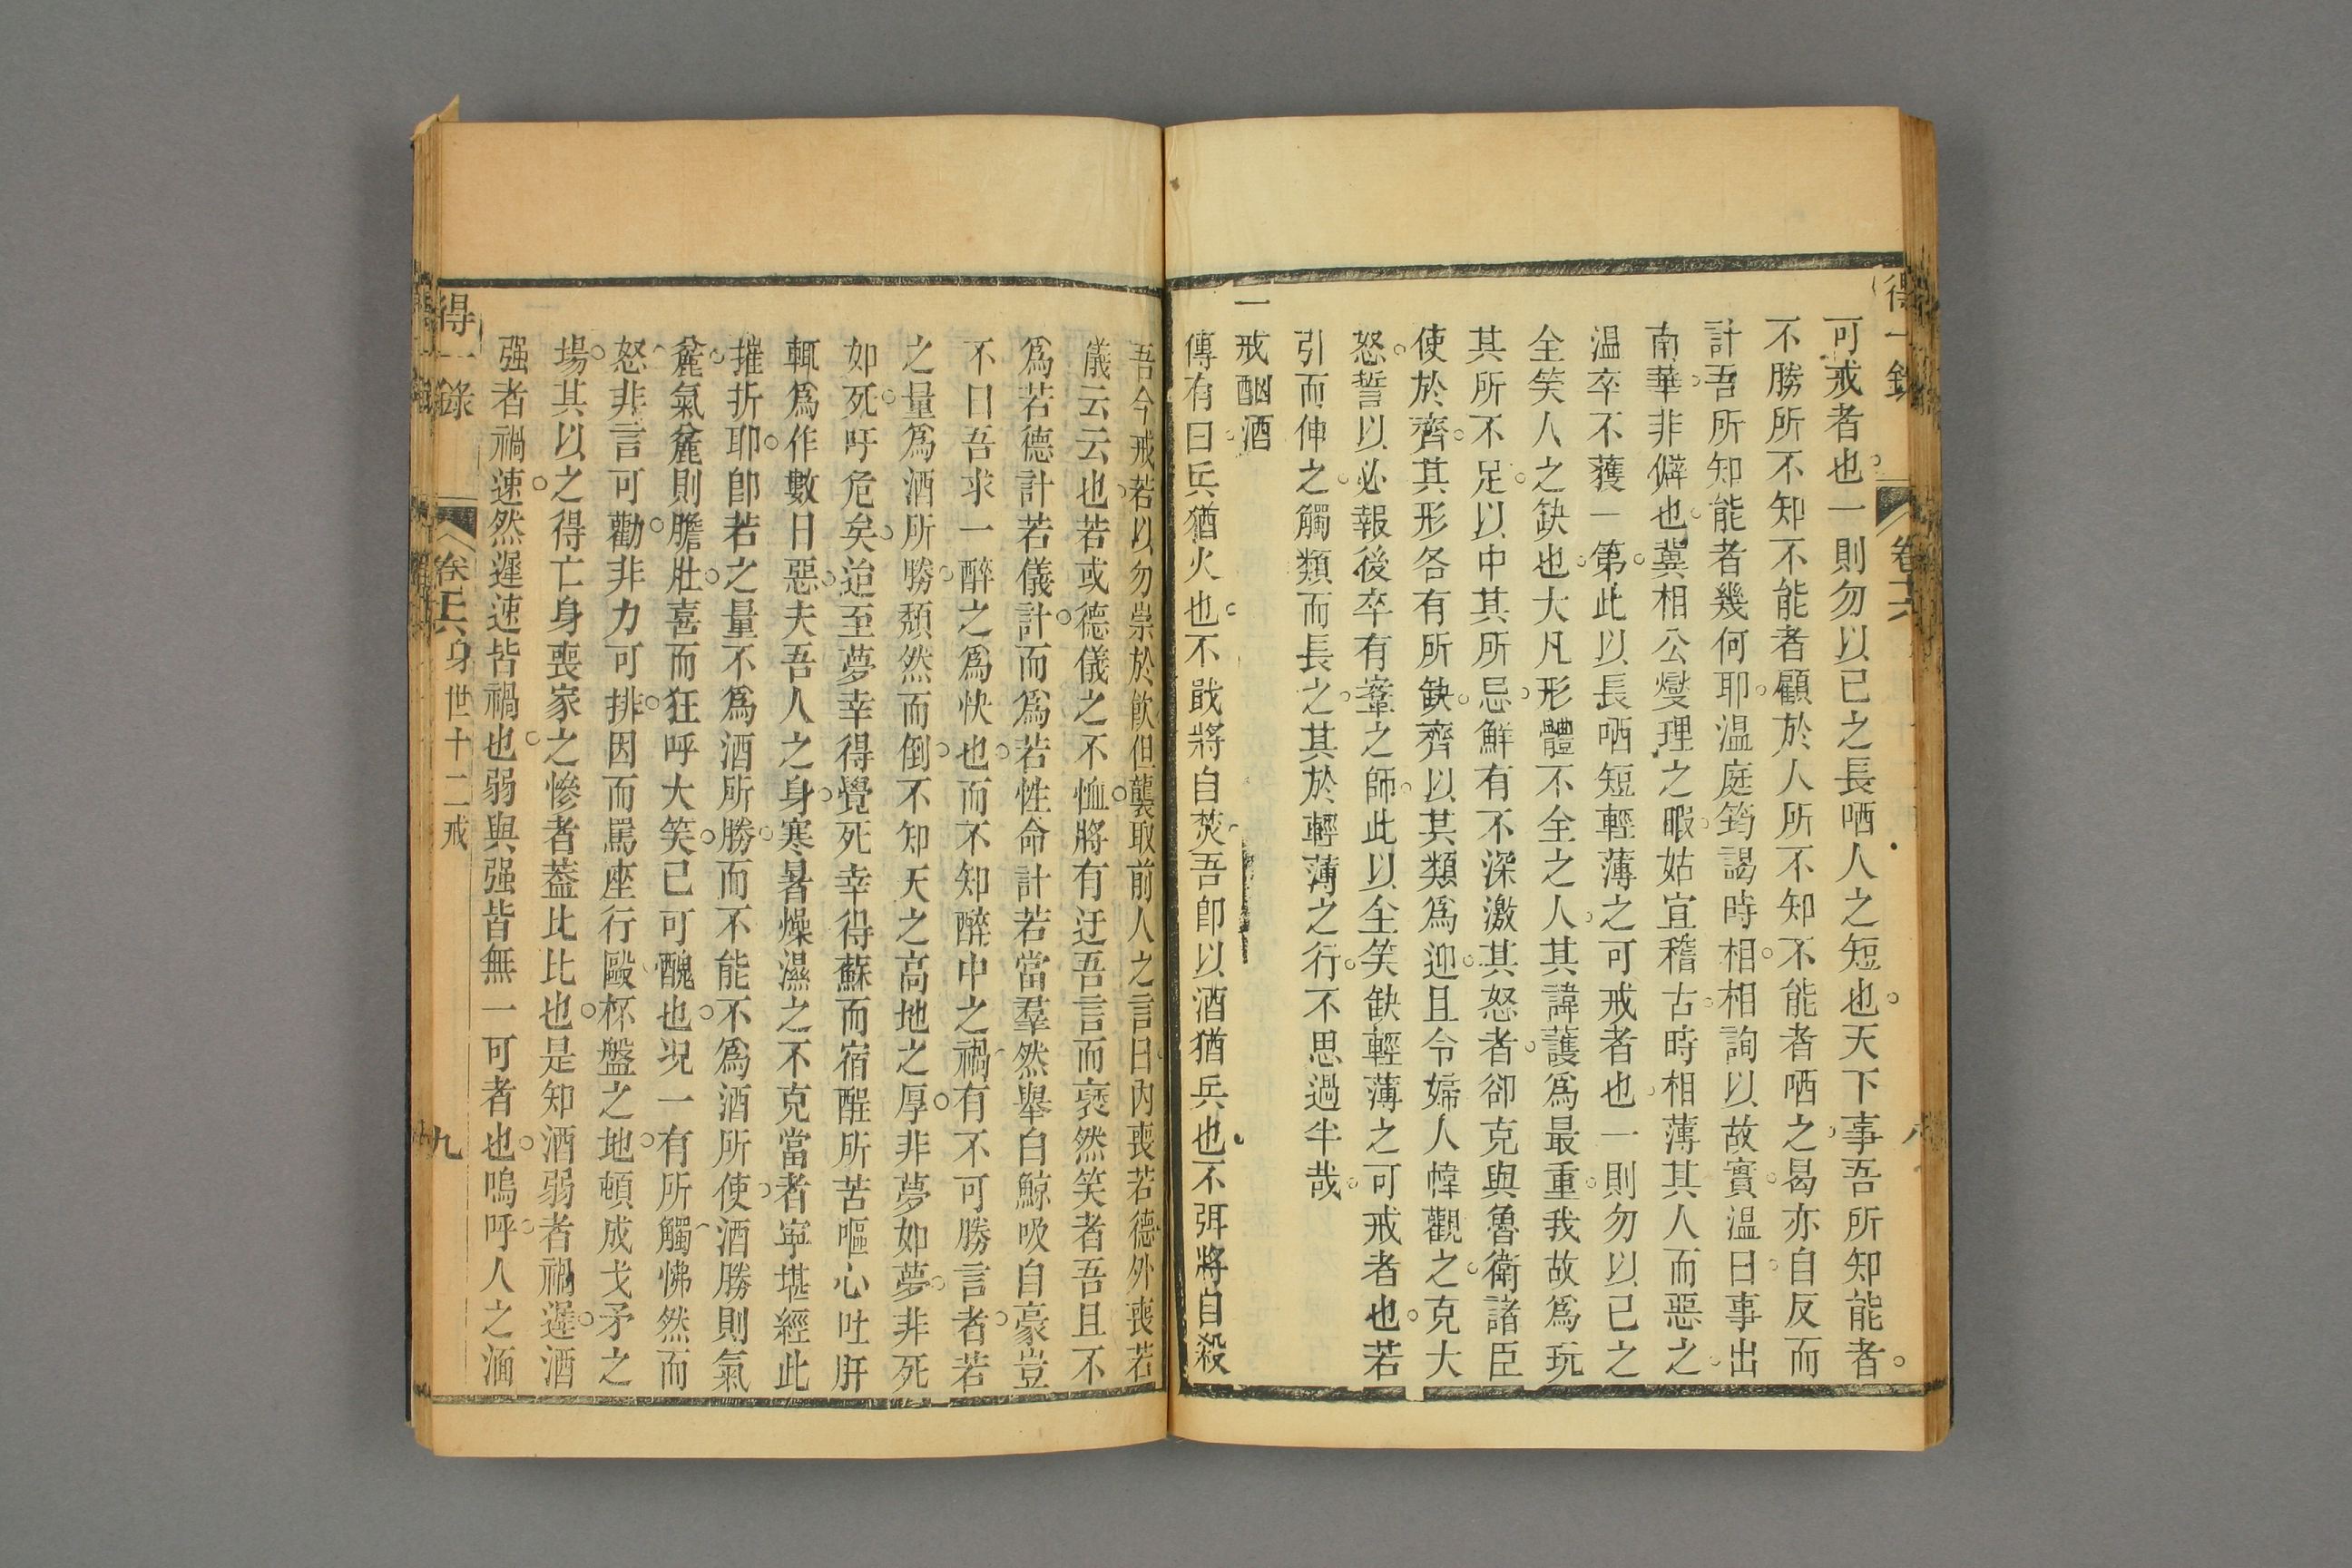 得一錄
卷十六
八
可戒者也一則勿以已之長哂人之短也天下事吾所知能者
不勝所不知不能者顧於人所不知不能者哂之曷亦自反而
計吾所知能者幾何耶温庭筠謁時相相詢以故實温曰事出
南華非僻也冀相公燮理之暇姑宜稽古時相薄其人而惡之
温卒不獲一第此以長哂短輕薄之可戒者也一則勿以已之
全笑人之缺也大凡形體不全之人其諱護爲最重我故爲玩
其所不足以中其所忌鮮有不深激其怒者郤克與魯衛諸臣
使於齊其形各有所缺齊以其類爲迎且令婦人幃觀之克大
怒誓以必報後卒有鞌之師此以全笑缺輕薄之可戒者也若
引而伸之觸類而長之其於輕薄之行不思過半哉
一戒酗酒
傳有曰兵猶火也不戢將自焚吾卽以酒猶兵也不弭將自殺
吾今戒若以勿崇於飲但襲取前人之言曰內喪若德外喪若
儀云云也若或德儀之不恤將有迂吾言而褎然笑者吾且不
爲若德計若儀計而爲若性命計若當羣然舉白鯨吸自豪豈
不曰吾求一醉之爲快也而不知醉中之禍有不可勝言者若
之量爲酒所勝頹然而倒不知天之高地之厚非夢如夢非死
如死吁危矣迨至夢幸得覺死幸得蘇而宿酲所苦嘔心吐肝
輒爲作數日惡夫吾人之身寒暑燥濕之不克當者寧堪經此
摧折耶卽若之量不爲酒所勝而不能不爲酒所使酒勝則氣
麄氣麄則膽壯喜而狂呼大笑已可醜也況一有所觸怫然而
怒非言可勸非力可排因而罵座行毆杯盤之地頓成戈矛之
場其以之得亡身喪家之慘者葢比比也是知酒弱者禍遲酒
强者禍速然遲速皆禍也弱與强皆無一可者也嗚呼人之湎
得一錄
身世十二戒
九